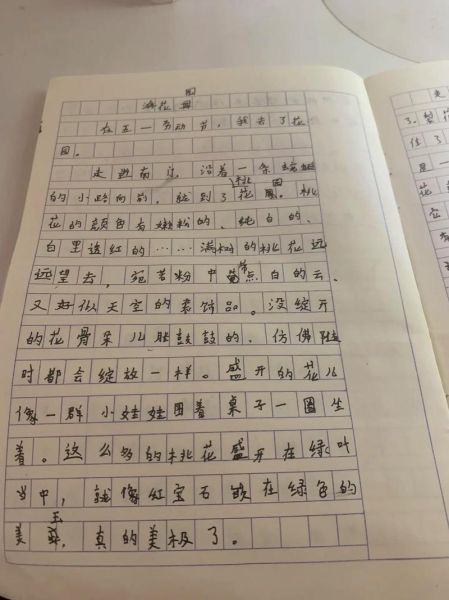 游花园
在五一劳动节，我去了花
园。
走进南门，沿着一条蜿蜒
的小路向前，就到了桃花园。桃
花的颜色有嫩粉的、纯白的、
白里透红的……满树的桃花远
远望去，宛若粉中带点白的云、
又好似天空的装饰品。没绽开
的花骨朵儿胀鼓鼓的，仿佛随
时都会绽放一样。盛开的花儿
像一群小娃娃围着桌子一圈坐
着。这么多的桃花盛开在绿叶
当中，就像红宝石嵌在绿色的
美玉，真的美极了。
3.梨花
住了
是一
花